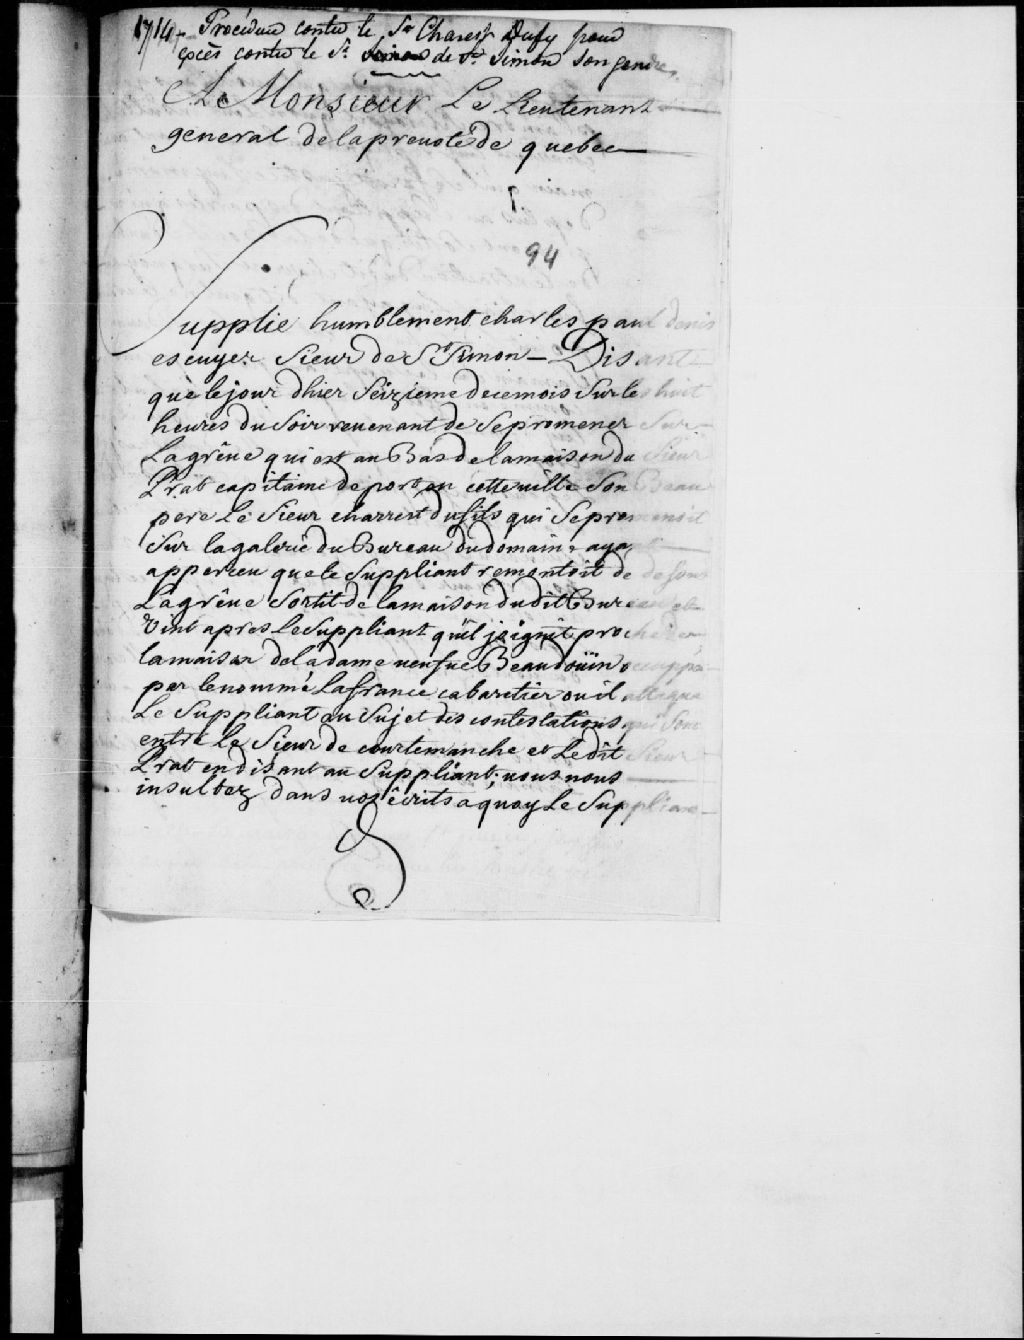 1714 - Procédure contre le Sr Charest Dufy pour
excès contre le Sr de St Simon Son gendre.
A Monsieur Le Lieutenant
general de la prevoté de quebec
94
Supplie humblement charles paul denis
escuyer Sieur de St Simon - Disant
que le jour dhier Seizieme de ce mois Sur les huit
heures du Soir revenant de Se promener Sur
La grêve qui est au Bas de la maison du Sieur
Prat capitaine de port en cette ville Son Beau
pere Le Sieur charrest du fils qui Se promenoit
Sur la galerie du Bureau du domaine aya
apperceu que le Suppliant remontoit de de Sous
La grêve Sortit de la maison du dit Bureau et
Vint apres Le Suppliant quil joignit proche
la maison de la dame veufue Beaudoüin occuppée
par le nommé Lafrance cabaretier ou il attaqua
Le Suppliant au Sujet des contestations qui Sont
entre Le Sieur de courtemanche et Ledit Sieur
Prat en disant au Suppliant, vous nous
insultez dans vos écrits a quoy Le Suppliant